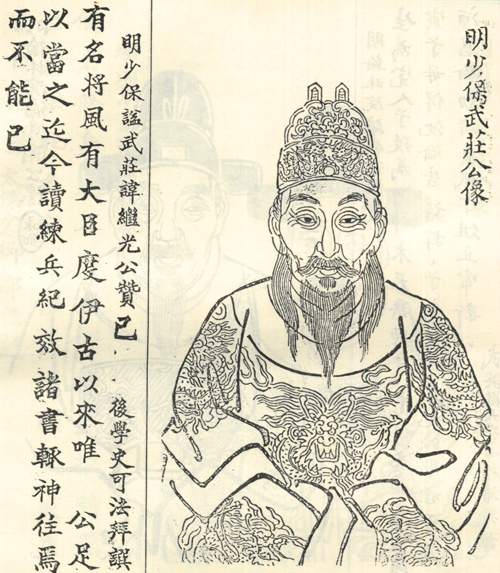 明少保武莊公像
明少保謚武莊諱繼光公贊已
後學史可法拜譔
有名将風有大臣度伊古以來唯 公足
以當之迄今讀練兵紀效諸書輙神往焉
而不能已